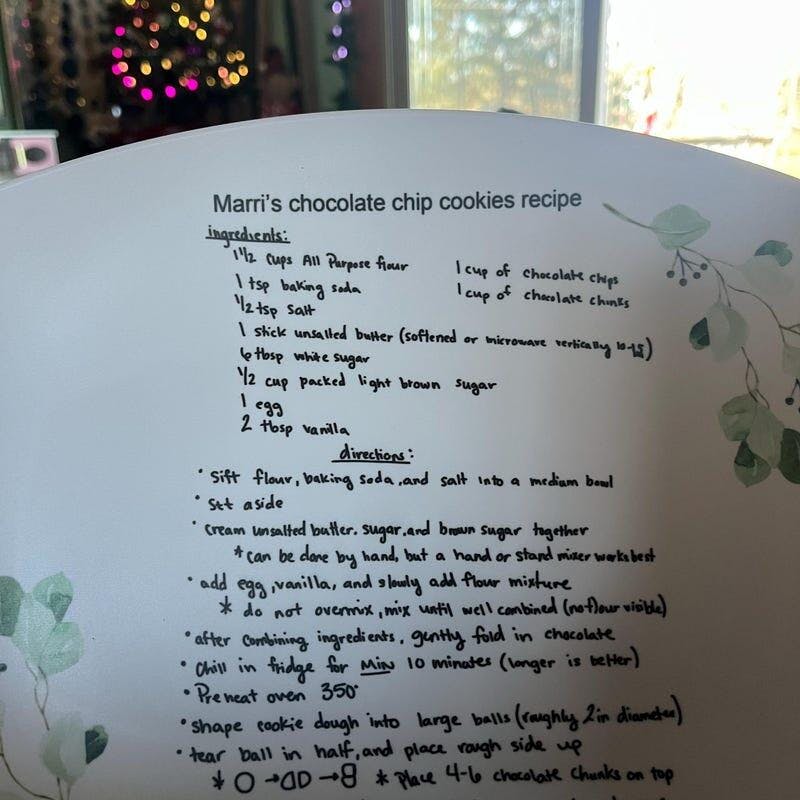 Marri's chocolate chip cookies recipe
ingredients:
1 1/2 cups All Purpose flour
1 cup of chocolate chips
1 tsp baking soda
1 cup of chocolate chunks
1/2 tsp salt
1 stick unsalted butter (softened or microwave vertically 10-15)
6 tbsp white sugar
1/2 cup packed light brown sugar
1 egg
2 tbsp vanilla
directions:
• Sift flour, baking soda, and salt into a medium bowl
• Set aside
• cream unsalted butter, sugar, and brown sugar together
* can be done by hand, but a hand or stand mixer works best
• add egg, vanilla, and slowly add flour mixture
* do not overmix, mix until well combined (no flour visible)
• after combining ingredients, gently fold in chocolate
• Chill in fridge for MIN 10 minutes (longer is better)
• Preheat oven 350°
• shape cookie dough into large balls (roughly 2in diameter)
• tear ball in half, and place rough side up
* → → * Place 4-6 chocolate chunks on top